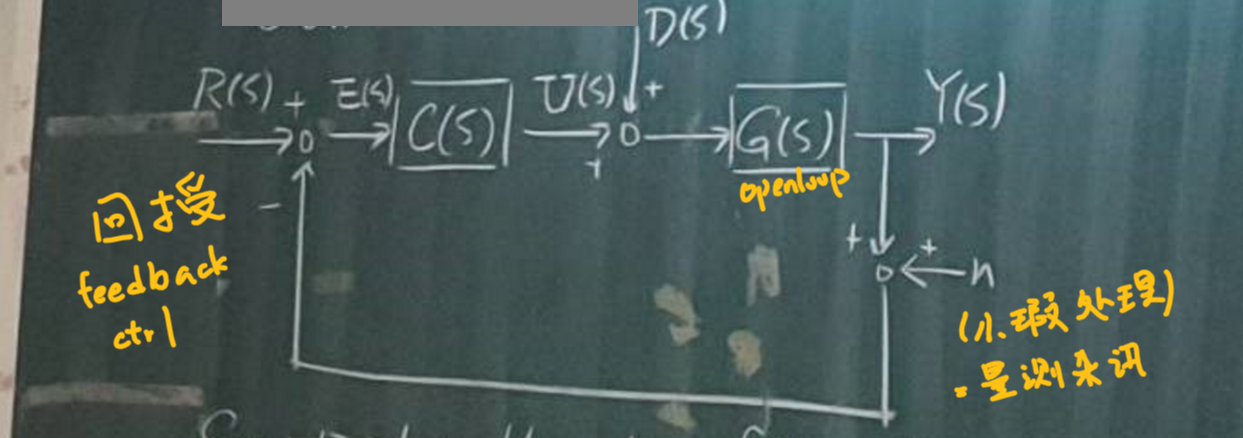 D(s)
R(s) + E(s) C(s) U(s) + G(s) Y(s)
+
openloop
回授
-
feedback
ctrl
+ +
n
(小瑕处理)
量测杂讯